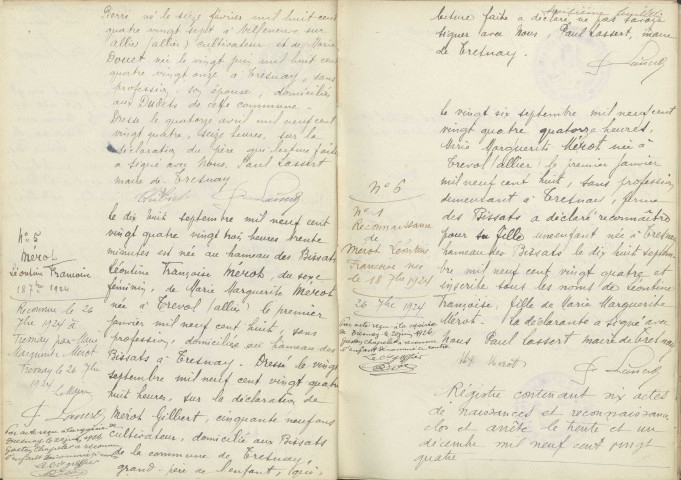 Pierre né le seize février mil huit cent
quatre vingt sept à Villeneuve sur
allier (allier) cultivateur et de Marie
Doucet née le vingt juin mil huit cent
quatre vingt onze à Tresnay, sans
profession son épouse, domiciliés
aux Dudets de cette commune.
Dressé le quatorze avril mil neuf cent
vingt quatre, seize heures, sur la
déclaration du père que lecture faite
a signé avec Nous, Paul Lassert
maire de Tresnay
P Lassert
N° 5
Mérot
Léontine Françoise
18 7bre 1924
Reconnue le 26
7bre 1924 à
Tresnay par Marie
Marguerite Mérot
Tresnay le 26 7bre
1924
Le Maire
P Lassert
le dix huit septembre mil neuf cent
vingt quatre vingt trois heures trente
minutes est née au hameau des Bissats
Léontine Françoise Merot, du sexe
féminin, de Marie Marguerite Mérot
née à Trevol (allier) le premier
janvier mil neuf cent huit, sans
profession, domiciliée au hameau des
Bissats à Tresnay. Dressé le vingt
septembre mil neuf cent vingt quatre
huit heures, sur la déclaration de
Merot Gilbert, cinquante neuf ans
cultivateur, domicilié aux Bissats
de la commune de Tresnay,
grand-père de l'enfant, qui,
lecture faite a déclaré ne pas savoir
signer avec Nous, Paul Lassert, maire
de Tresnay.
P Lassert
N° 6
N° 1
Reconnaissance
de
Mérot Léontine
Francoise née
le 18 7bre 1924
26 7bre 1924
le vingt six septembre mil neuf cent
vingt quatre quatorze heures,
Marie Marguerite Mérot née à
Treval (allier) le premier janvier
mil neuf cent huit, sans profession
demeurant à Tresnay, ferme
des Bissats a déclaré reconnaître
pour sa fille une enfant née à Tresnay
hameau des Bissats le dix huit septem-
bre mil neuf cent vingt quatre et
inscrite sous les noms de Léontine
Françoise, fille de Marie Marguerite
Mérot. La déclarante a signé avec
Nous Paul Lassert maire de Tresnay
Mérot
P Lassert
Régistre contenant six actes
de naissances et reconnaissance
clos et arrêté le trente et un
décembre mil neuf cent vingt
quatre